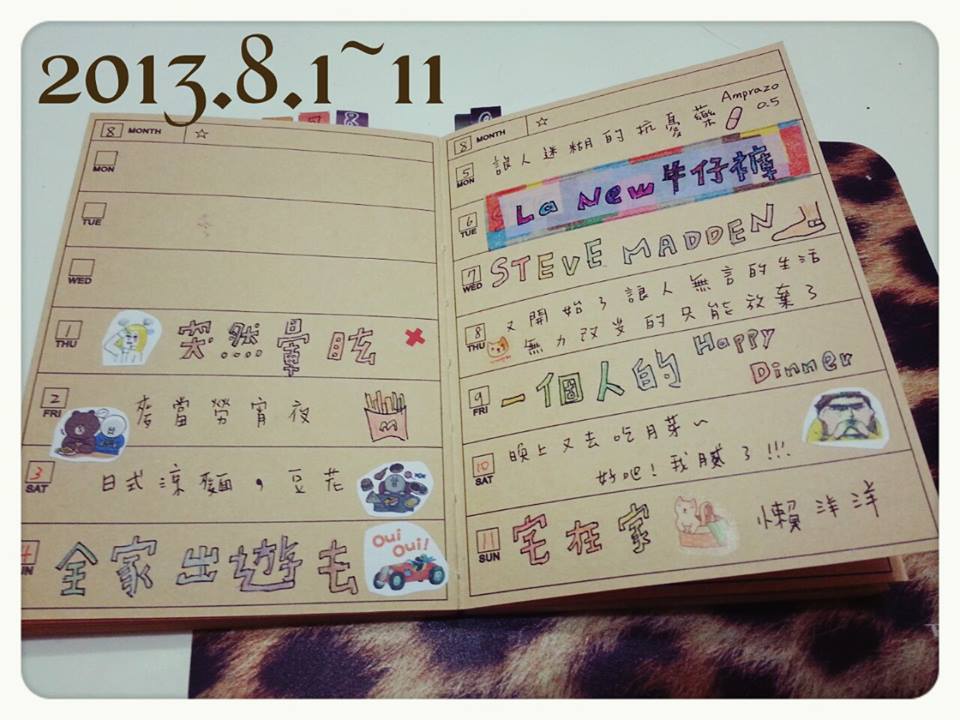 2013.8.1~11
8 MONTH ☆
MON
TUE
WED
1 THU 突然暈眩
2 FRI 麥當勞宵夜
3 SAT 日式涼麵，豆花
4 全家出遊去
Oui Oui!
8 MONTH ☆
Amprazo
0.5
5 MON 讓人迷糊的抗憂藥
6 TUE La New 牛仔褲
7 WED STEVE MADDEN
8 THU 又開始了讓人無言的生活
無力改變的只能放棄了
9 FRI 一個人的 Happy
Dinner
10 SAT 晚上又去吃月芽~
好吧!我膩了!!!
11 SUN 宅在家 懶洋洋